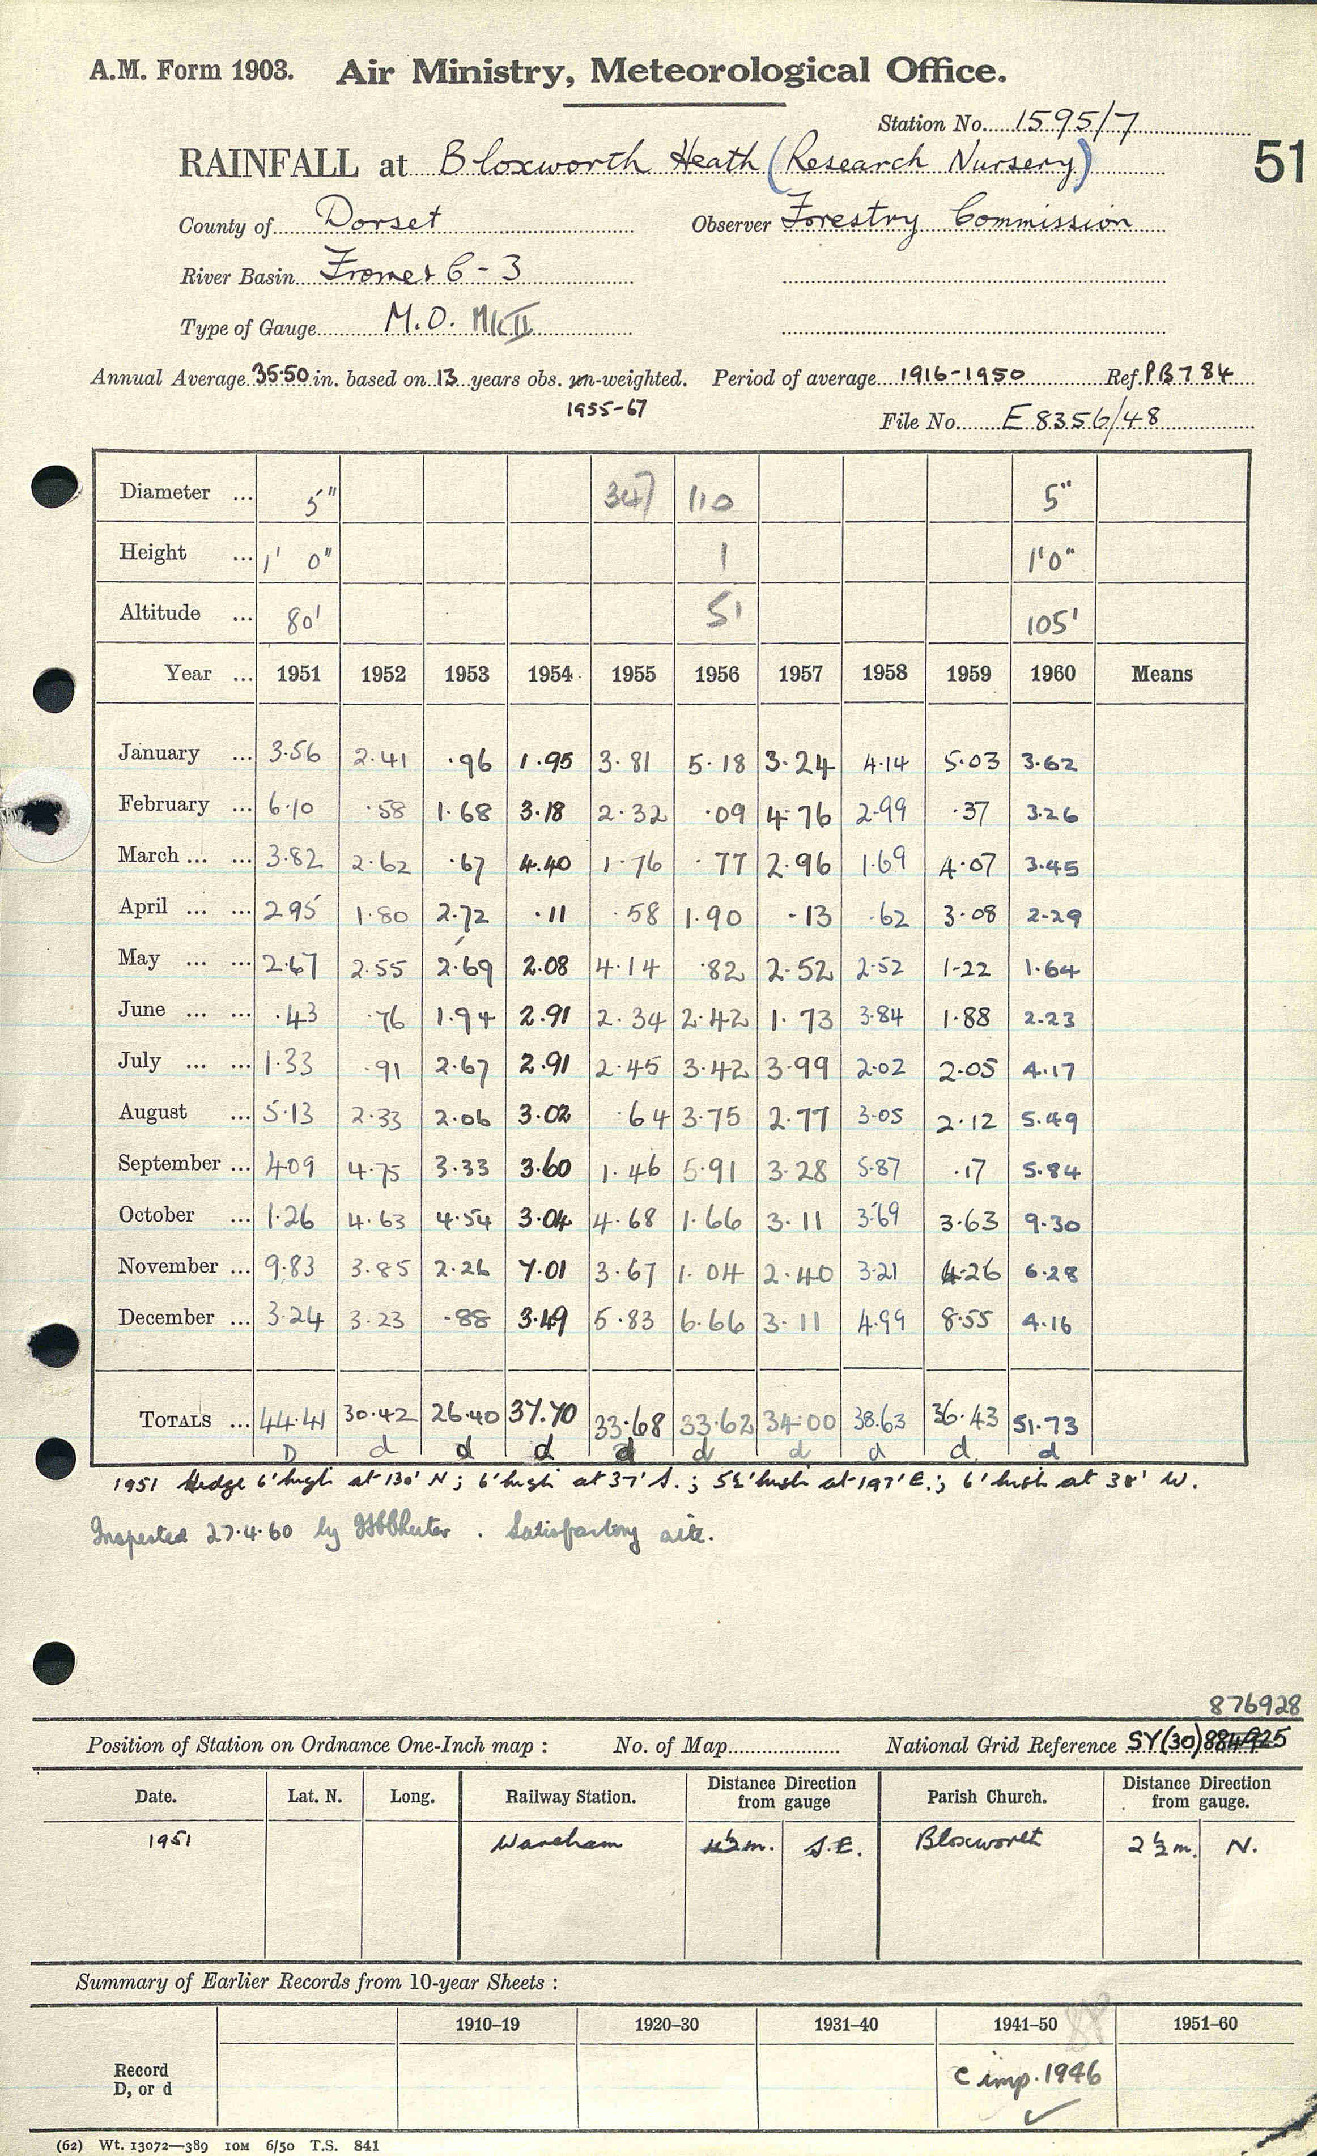 A.M. Form 1903. Air Ministry, Meteorological Office.
Station No. 1595/7
RAINFALL at Bloxworth Heath (Research Nursery) 51
County of Dorset Observer Forestry Commission
River Basin Frome & C-3
Type of Gauge M.O. Mk II
Annual Average 35·50 in. based on 13 years obs. un-weighted. Period of average 1916-1950 Ref. PB784
1955-67
File No. E 8356/48
Diameter ... 5" 347 110 5"
Height ... 1' 0" 1 1'0"
Altitude ... 80' 51 105'
Year ... 1951 1952 1953 1954 1955 1956 1957 1958 1959 1960 Means
January ... 3·56 2·41 ·96 1·95 3·81 5·18 3·24 4·14 5·03 3·62
February ... 6·10 ·58 1·68 3·18 2·32 ·09 4·76 2·99 ·37 3·26
March ... ... 3·82 2·62 ·67 4·40 1·76 ·77 2·96 1·69 4·07 3·45
April ... ... 2·95 1·80 2·72 ·11 ·58 1·90 ·13 ·62 3·08 2·29
May ... ... 2·67 2·55 2·69 2·08 4·14 ·82 2·52 2·52 1·22 1·64
June ... ... ·43 ·76 1·94 2·91 2·34 2·42 1·73 3·84 1·88 2·23
July ... ... 1·33 ·91 2·67 2·91 2·45 3·42 3·99 2·02 2·05 4·17
August ... 5·13 2·33 2·06 3·02 ·64 3·75 2·77 3·05 2·12 5·49
September ... 4·09 4·75 3·33 3·60 1·46 5·91 3·28 5·87 ·17 5·84
October ... 1·26 4·63 4·54 3·04 4·68 1·66 3·11 3·69 3·63 9·30
November ... 9·83 3·85 2·26 7·01 3·67 1·04 2·40 3·21 4·26 6·28
December ... 3·24 3·23 ·88 3·49 5·83 6·66 3·11 4·99 8·55 4·16
TOTALS ... 44·41 30·42 26·40 37·70 33·68 33·62 34·00 38·63 36·43 51·73
D d d d d d d d d d
1951 Hedge 6' high at 130' N; 6' high at 37' S.; 5½' high at 197' E.; 6' high at 38' W.
Inspected 27·4·60 by . Satisfactory site.
876928
Position of Station on Ordnance One-Inch map : No. of Map National Grid Reference SY(30)884925
Date. Lat. N. Long. Railway Station. Distance Direction from gauge Parish Church. Distance Direction from gauge.
1951 Wareham 4½m. S.E. Bloxworth 2½m. N.
Summary of Earlier Records from 10-year Sheets :
1910–19 1920–30 1931–40 1941–50 1951–60
Record
D, or d
C imp. 1946
(62) Wt. 13072—389 10M 6/50 T.S. 841